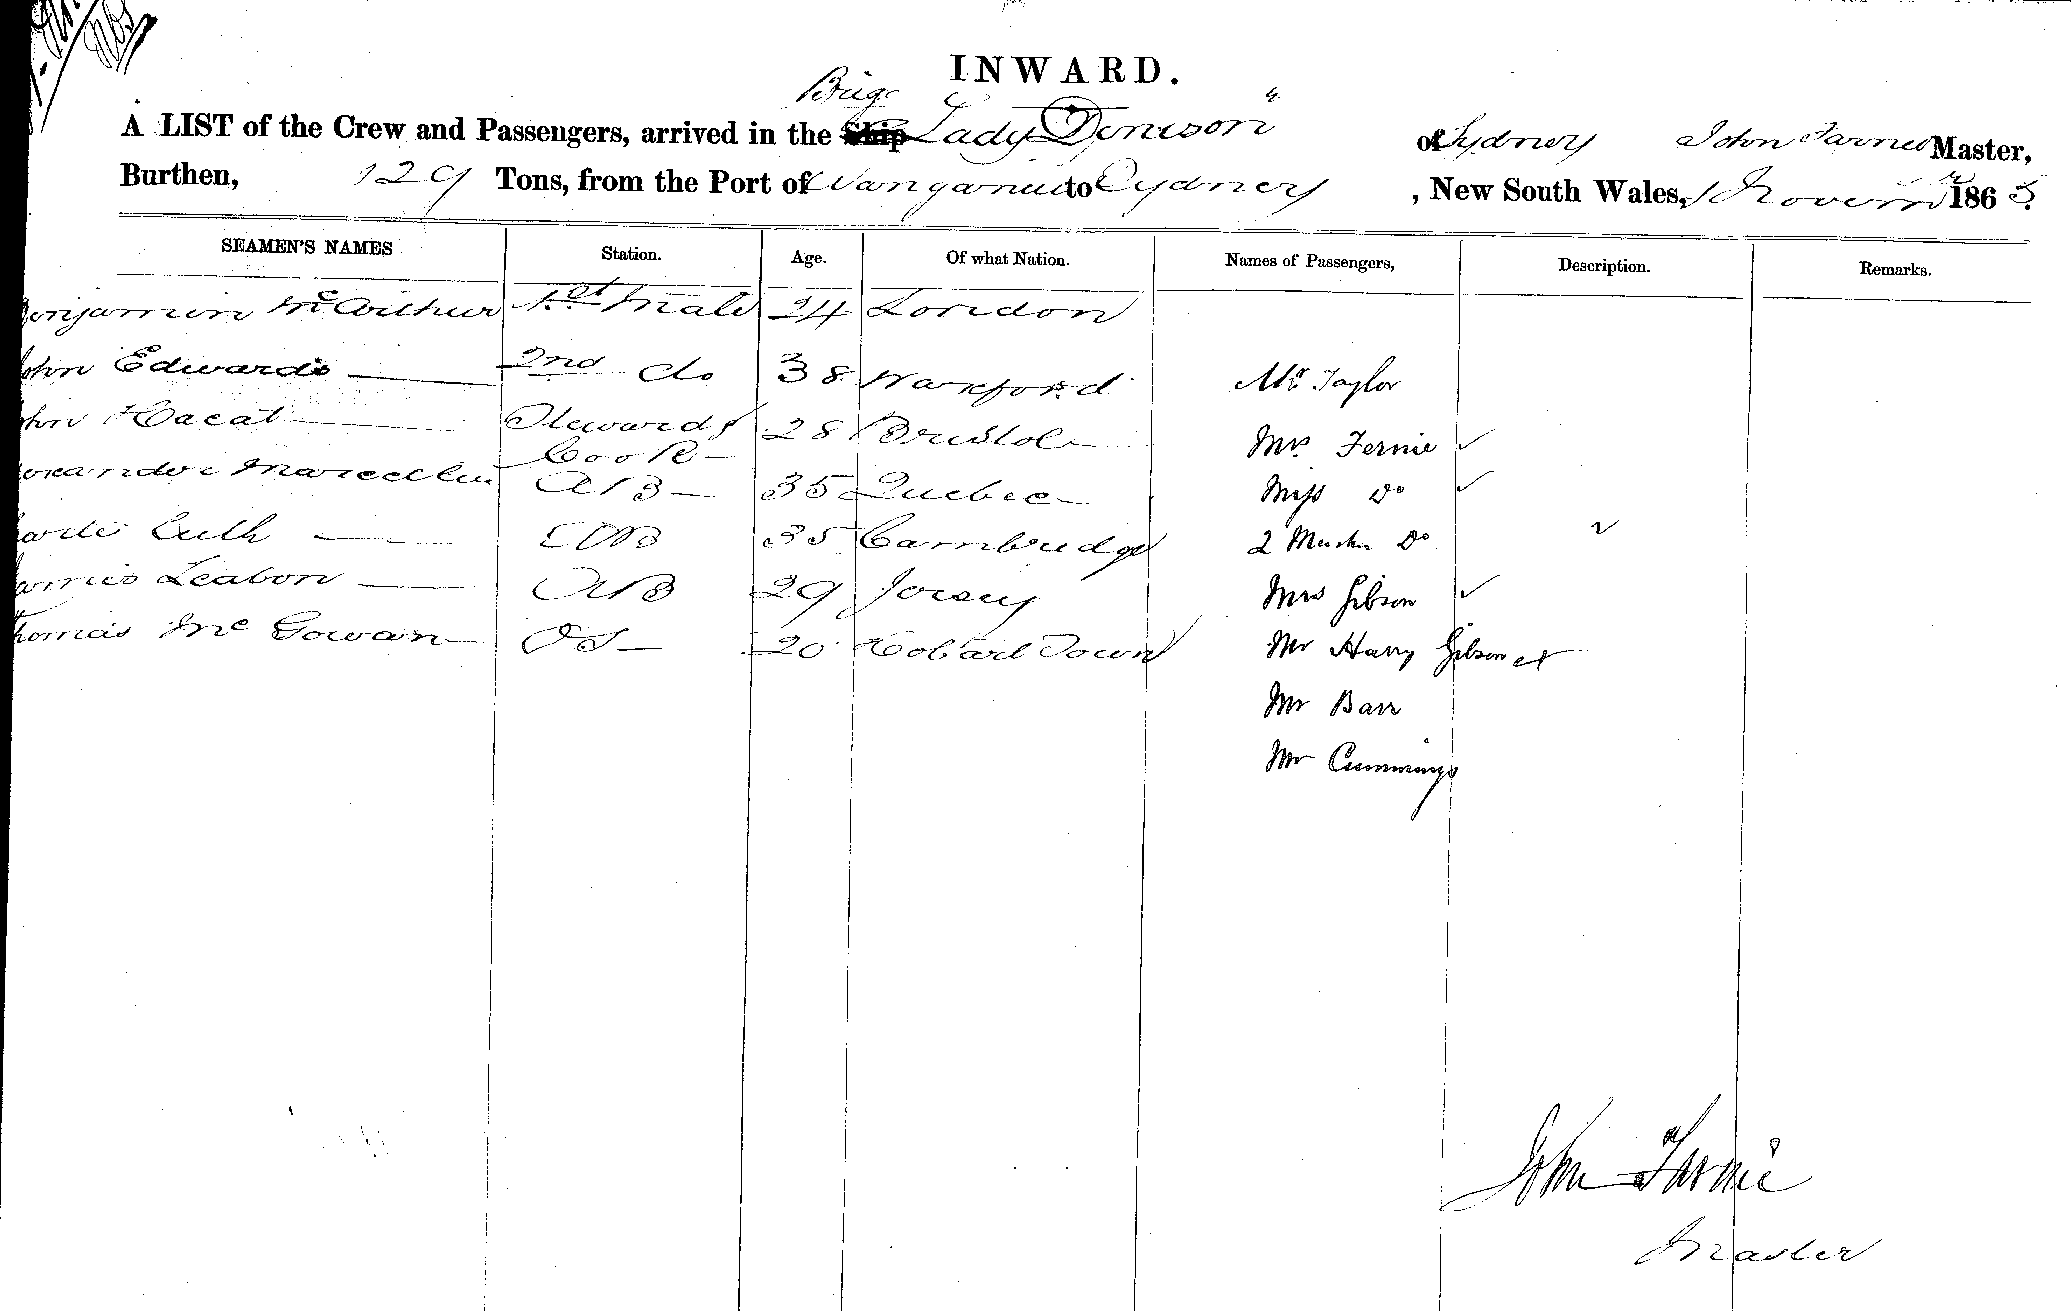 INWARD.
Brig
A LIST of the Crew and Passengers, arrived in the Ship Lady Denison" of Sydney John Farnie Master,
Burthen, 129 Tons, from the Port of Wanganui to Sydney, New South Wales, 1 Novemr 1863.
SEAMEN'S NAMES Station. Age. Of what Nation. Names of Passengers, Description. Remarks.
Benjamin McArthur 1st Mate 24 London
John Edwards 2nd do 38 Warxford Mr Taylor
John Hacat Steward & 28 Bristol Mrs Fernie
Cook
Marcellin AB 35 Quebec Miss Do
Luth AB 35 Cambridge 2 Do
James Leabon AB 29 Jersey Mrs Gibson
Thomas McGowan OS 20 Hobart Town Mr Harry Gibson
Mr Barr
Mr Cummings
John Farnie
Master